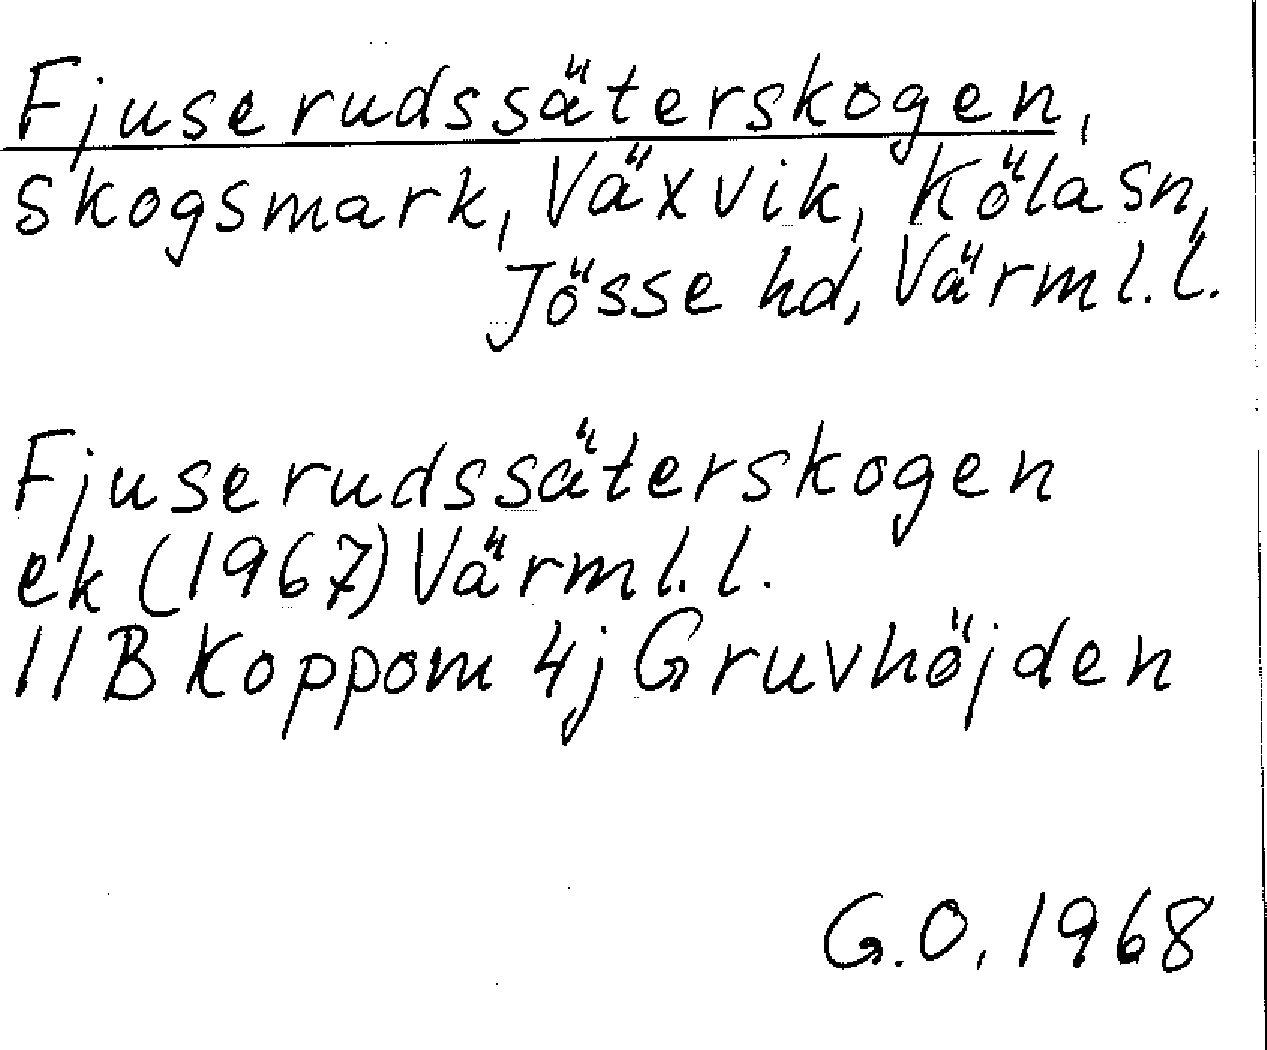 Fjuserudssäterskogen,
skogsmark, Växvik, Köla sn,
Jösse hd, Värml. l.
Fjuserudssäterskogen
ek (1967) Värml. l.
11B Koppom 4j Gruvhöjden
G.O. 1968